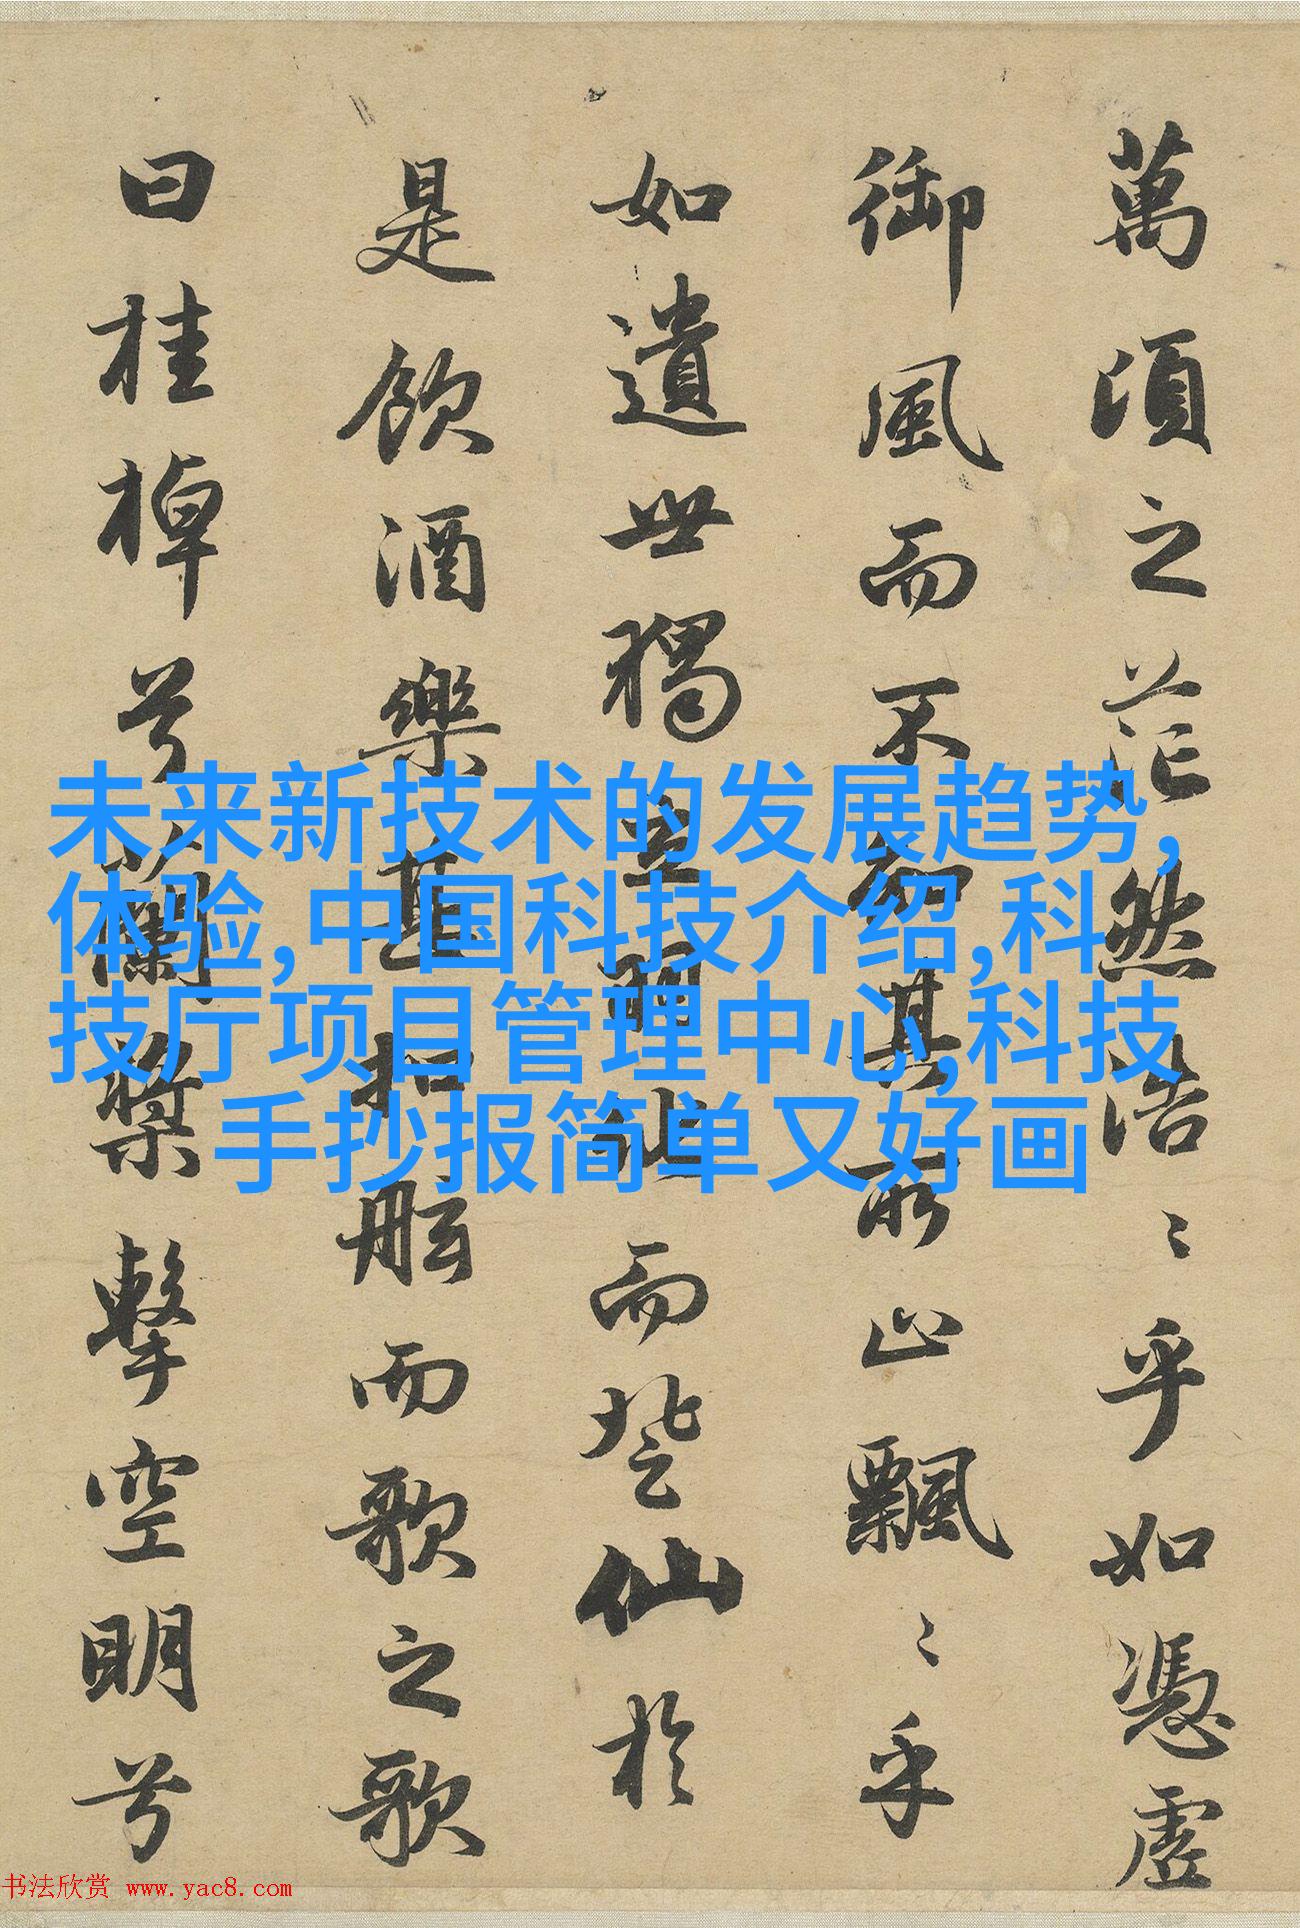 萬頃之茫然浩〻乎如憑虛
御風而不知其所止飄〻乎
如遺世獨立羽化而登仙於
是飲酒樂甚扣舷而歌之歌
曰桂棹兮蘭槳擊空明兮
未来新技术的发展趋势,
体验,中国科技介绍,科
技厅项目管理中心,科技
手抄报简单又好画
书法欣赏 www.yac8.com